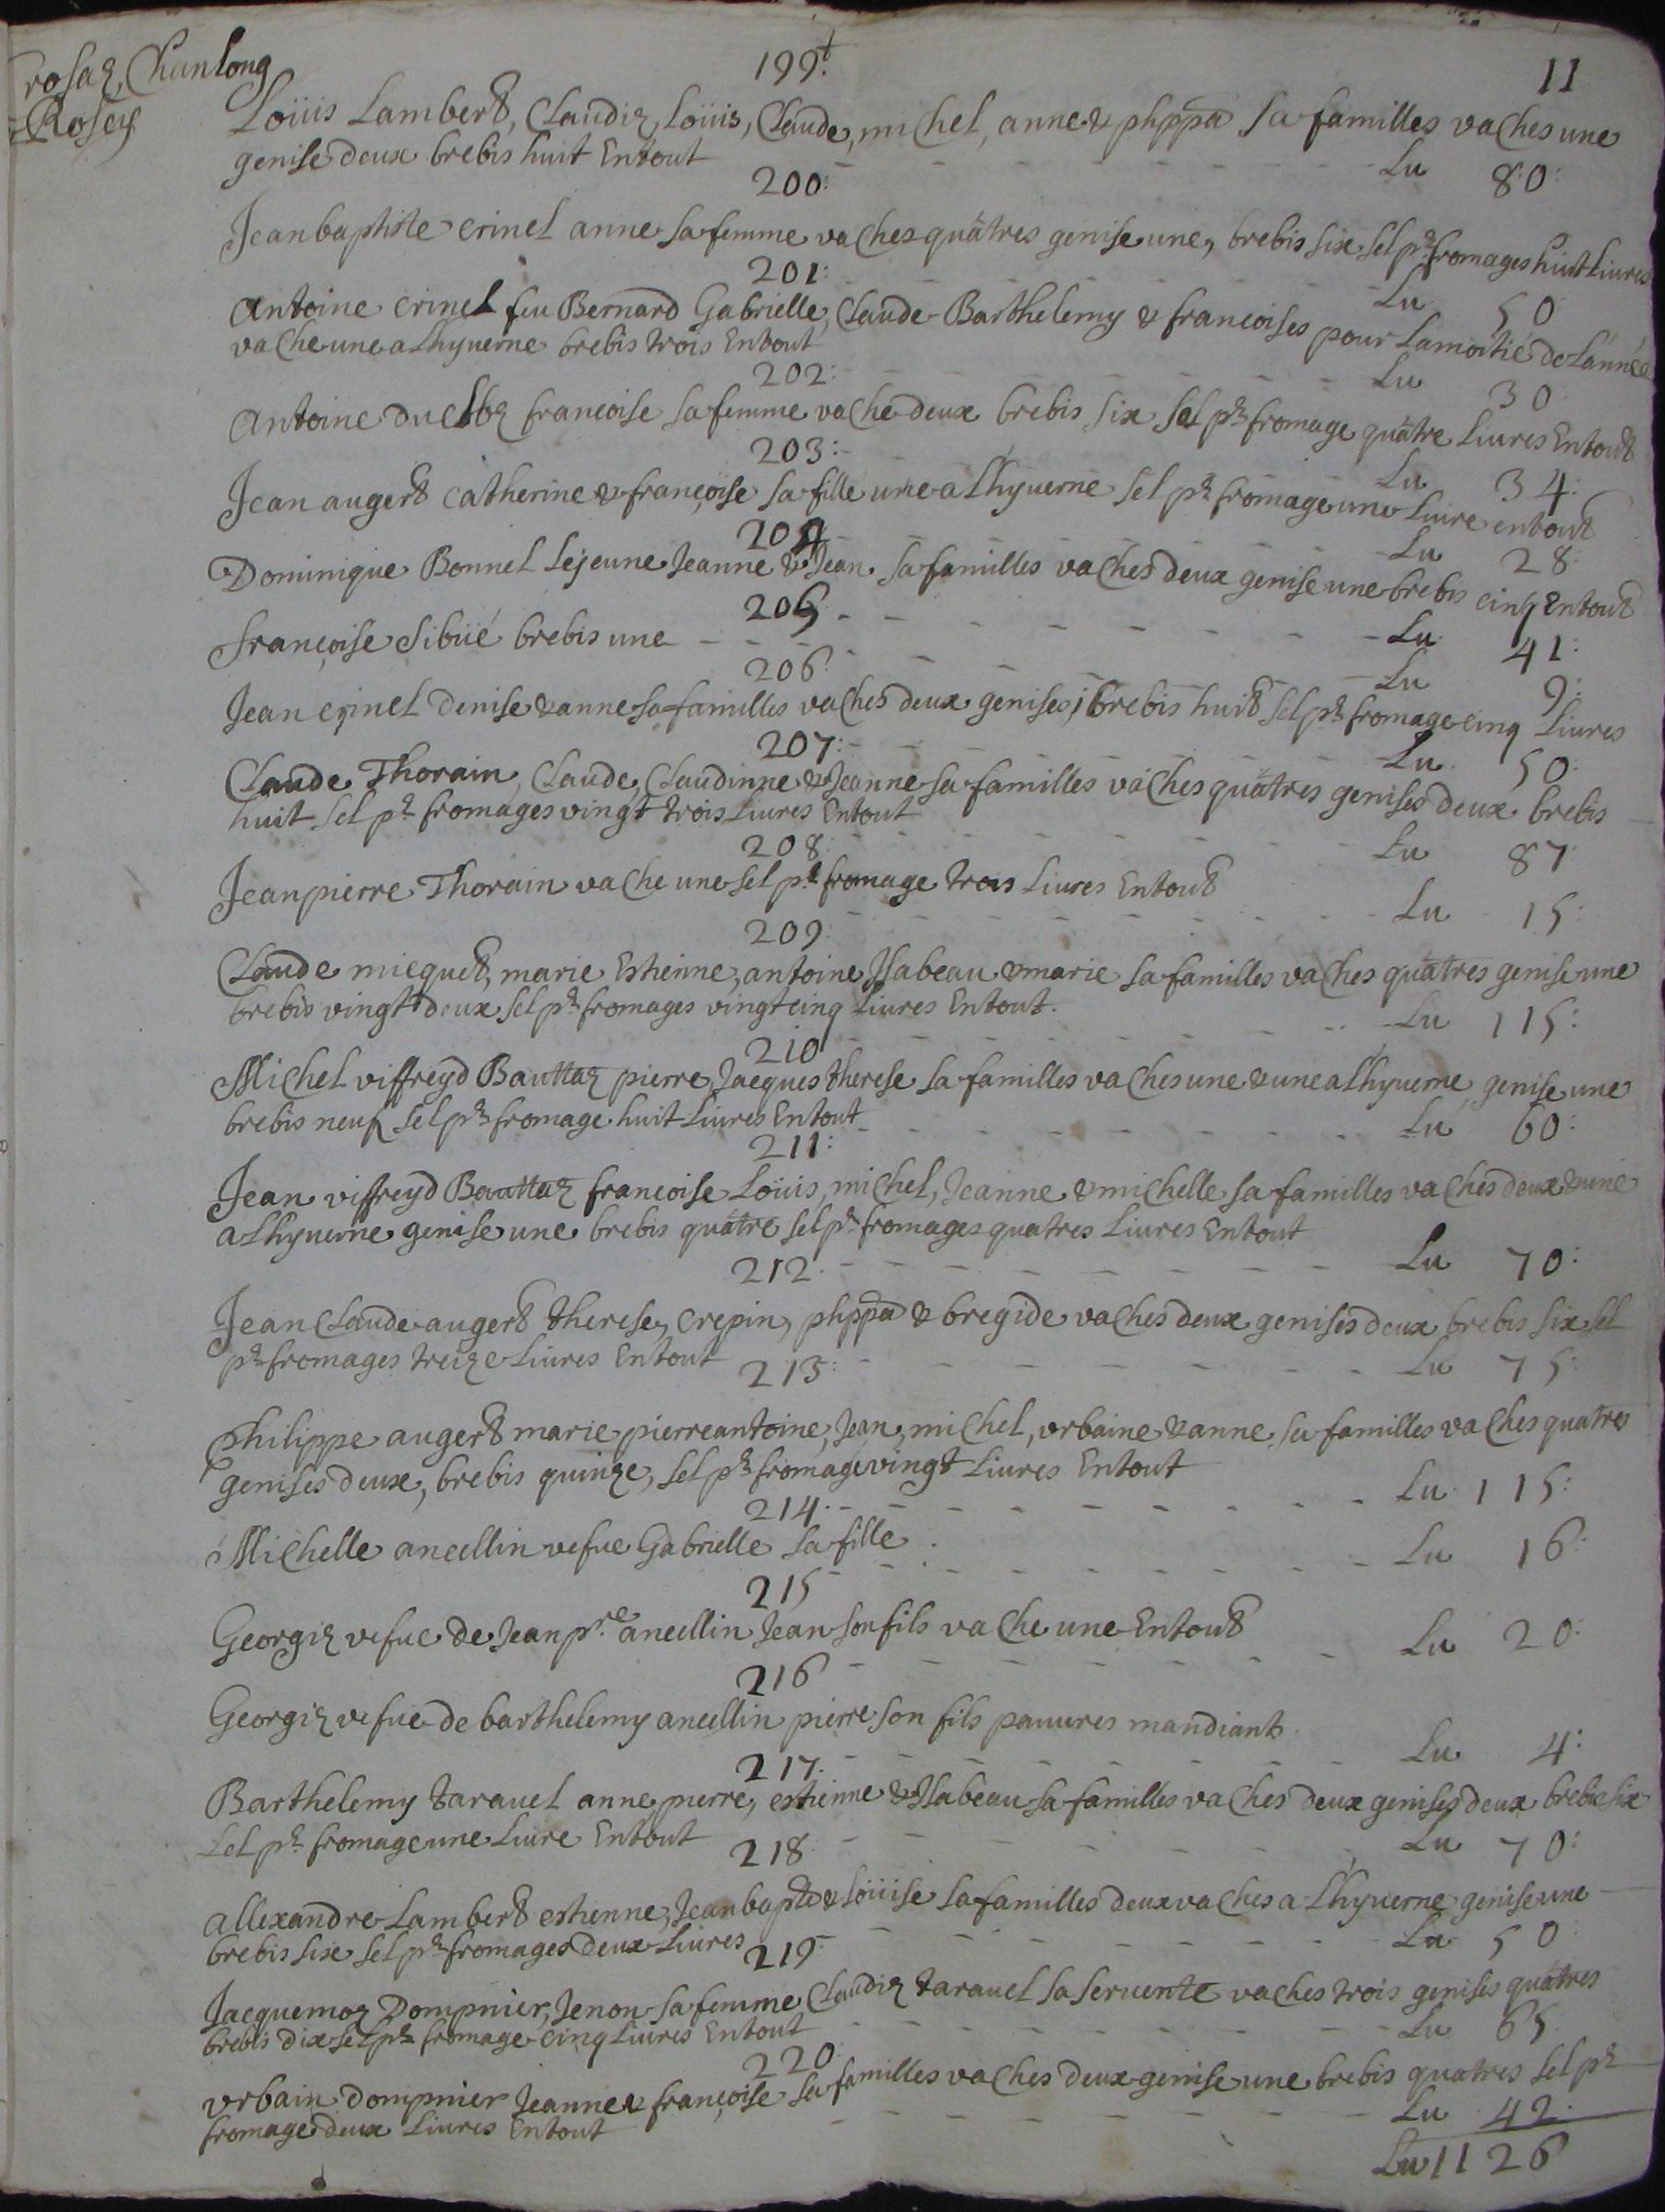 rosaz, Chanlong
Rosey
199:
11
Loüis Lambert, Claudiz, Loüis, Claude, michel, anne & phppa sa familles vaches une
genise deux brebis huit Entout Lu 80:
200:
Jeanbaptiste crinel anne sa femme vaches quâtres genise une, brebis six sel pr fromages huit Liures
Lu 50
201:
antoine crinel feu Bernard Gabrielle, Claude Barthelemy & francoises pour Lamoitié de Lannée
vache une a Lhyuerne brebis trois Entout Lu 30
202:
antoine du francoise sa femme vache deux brebis six sel pr fromage quâtre Liures Entout
Lu 34:
203:
Jean augert catherine & françoise sa fille une a Lhyuerne sel pr fromage une Liure entout
Lu 28:
204
Dominique Bonnel Lejeune Jeanne & Jean sa familles vaches deux genise une brebis cinq Entout
Lu 41:
205
françoise sibüé brebis une Lu 9:
206
Jean crinel denise & anne sa familles vaches deux genises, brebis huit sel pr fromage cinq Liures
Lu 50:
207:
Claude Thorain, Claude, Claudinne & Jeanne sa familles vaches quâtres genises deux brebis
huit sel pr fromages vingt trois Liures Entout Lu 87
208:
Jeanpierre Thorain vache une sel pr fromage trois Liures Entout Lu 15:
209:
Claude micquet, marie Estienne, antoine, Isabeau & marie sa familles vaches quâtres genise une
brebis vingt deux sel pr fromages vingt cinq Liures Entout. Lu 115:
210
Michel viffreyd Bauttaz pierre, Jacques therese sa familles vaches une & une a Lhyuerne genise une
brebis neuf sel pr fromage huit Liures Entout Lu 60:
211:
Jean viffreyd Bauttaz francoise Loüis, michel, Jeanne & michelle sa familles vaches deux & une
a Lhyuerne genise une brebis quâtre sel pr fromages quatres Liures Entout
Lu 70:
212:
Jean Claude augert therese, crepin, phppa & bregide vaches deux genises deux brebis six sel
pr fromages treize Liures Entout Lu 75:
213:
philippe augert marie pierreantoine, Jean, michel, vrbaine & anne sa familles vaches quatres
genises deux, brebis quinze, sel pr fromage vingt Liures Entout Lu 115:
214:
Michelle ancellin vefue Gabrielle sa fille Lu 16:
215
Georgiz vefue de Jean pre ancellin Jean son fils vache une Entout Lu 20:
216
Georgiz vefue de barthelemy ancellin pierre son fils pauures mandiants
Lu 4:
217:
Barthelemy tarauel anne, pierre, estienne & Isabeau sa familles vaches deux genises deux brebis six
sel pr fromage une Liure Entout Lu 70:
218
allexandre Lambert estienne, Jeanbapte & Loüise sa familles deux vaches a Lhyuerne genise une
brebis six sel pr fromages deux Liures Lu 50
219
Jacquemoz Dompnier, Jenon sa femme, Claudiz tarauel sa seruente vaches trois genises quâtres
brebis dix sel pr fromage cinq Liures Entout Lu 65
220
vrbain Dompnier Jeanne & françoise sa familles vaches deux genise une brebis quatres sel pr
fromage deux Liures Entout Lu 42:
Lu 1126